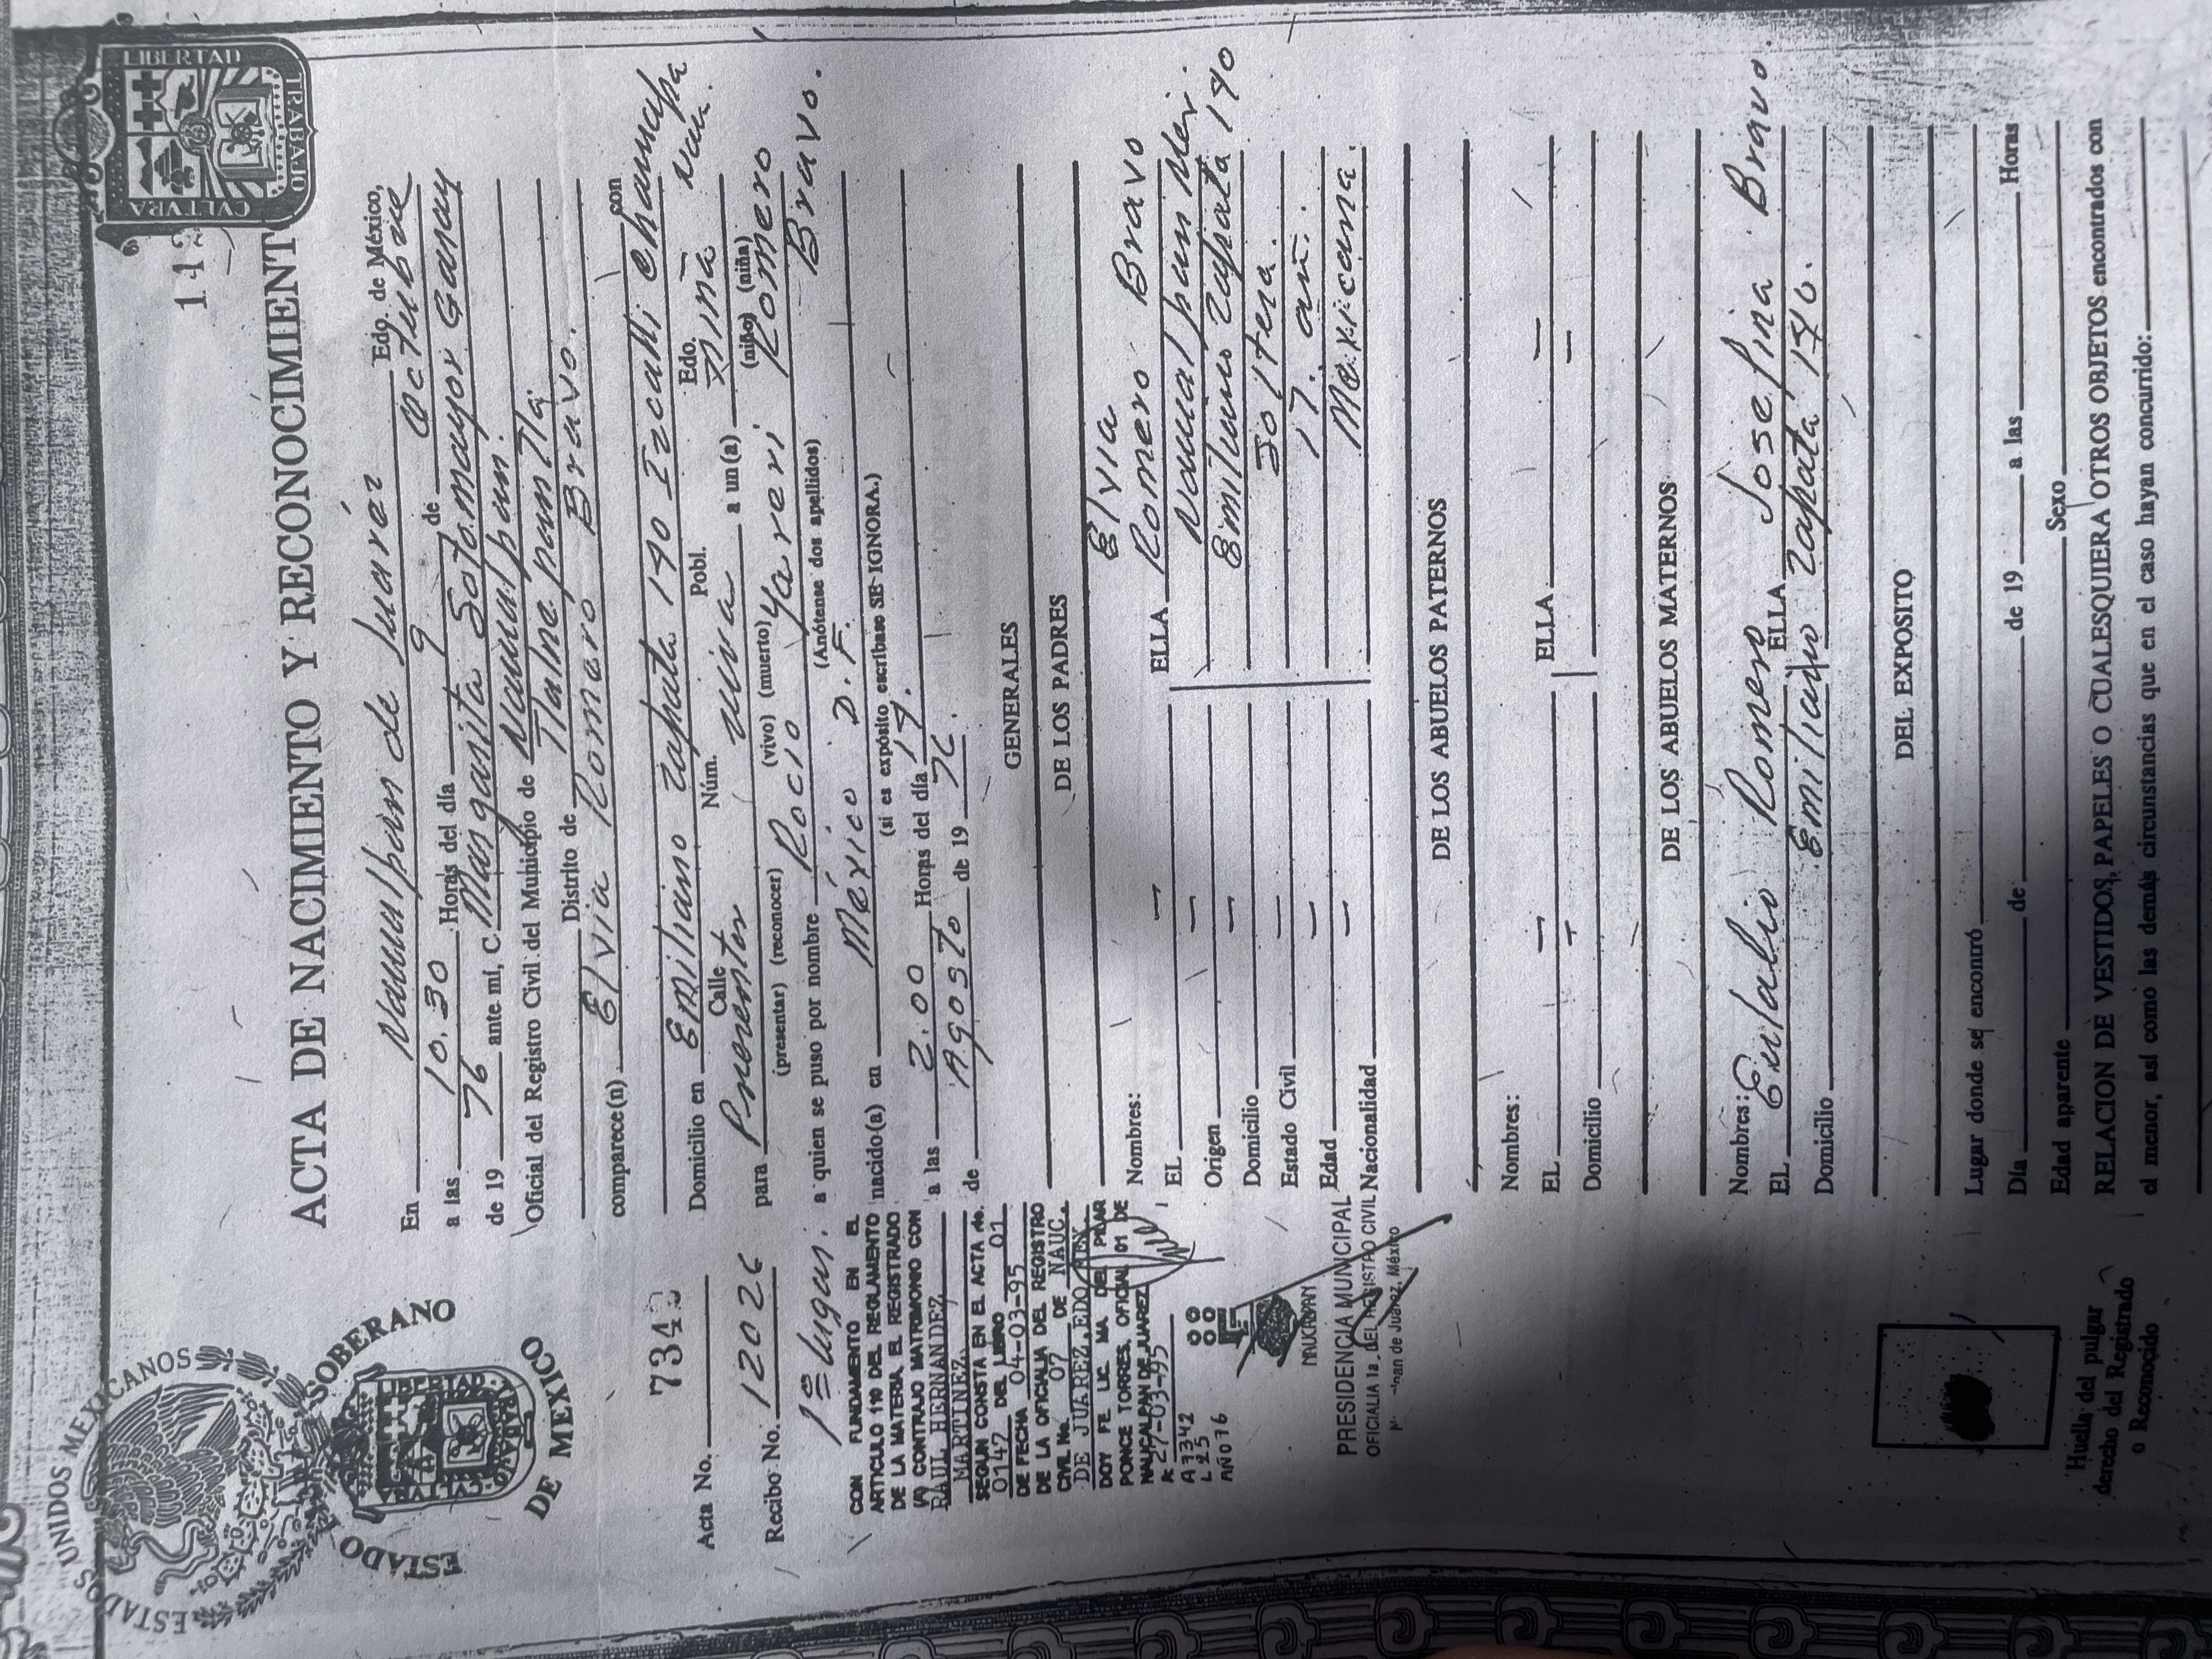 ESTADOS UNIDOS MEXICANOS
ESTADO LIBRE Y SOBERANO
DE MEXICO
LIBERTAD
TRABAJO
CVLTVRA
ACTA DE NACIMIENTO Y RECONOCIMIENT
En Naucalpan de Juárez Edo. de México,
a las 10.30 Horas del día 9 de Octubre
de 19 76 ante mí, C. Margarita Sotomayor Garay
Oficial del Registro Civil del Municipio de Naucalpan.
Distrito de Tlalnepantla
comparece(n) Elvia Romero Bravo. con
Domicilio en Emiliano Zapata 190 Izcalli Chamapa Nau.
Calle Núm. Pobl. Edo.
para Presentar viva a un(a) niña
(presentar) (reconocer) (vivo) (muerto) (niño) (niña)
a quien se puso por nombre Rocio Yareri Romero Bravo.
(Anótense dos apellidos)
nacido(a) en México D.F.
(si es expósito escríbase SE IGNORA.)
a las 2.00 Horas del día 17.
de Agosto de 19 76.
Acta No. 7342
Recibo No. 12026
1er lugar.
CON FUNDAMENTO EN EL
ARTICULO 110 DEL REGLAMENTO
DE LA MATERIA, EL REGISTRADO
(A) CONTRAJO MATRIMONIO CON
RAUL HERNANDEZ
MARTINEZ
SEGUN CONSTA EN EL ACTA No.
0147 DEL LIBRO 01
DE FECHA 04-03-95
DE LA OFICIALIA DEL REGISTRO
CIVIL No. 07 DE NAUC.
DE JUAREZ, EDO MEX
DOY FE LIC. MA DEL PILAR
PONCE TORRES. OFICIAL 01 DE
NAUCALPAN DE JUAREZ
A: 27-03-95
A 7342
L 25
AÑO 76
NAUCALPAN
PRESIDENCIA MUNICIPAL
OFICIALIA 1a. DEL REGISTRO CIVIL
de Juárez, México
GENERALES
DE LOS PADRES
Nombres: Elvia
EL — ELLA Romero Bravo
Origen — Naucalpan Mex.
Domicilio — Emiliano Zapata 190
Estado Civil — Soltera.
Edad — 17. añ.
Nacionalidad — Mexicana.
DE LOS ABUELOS PATERNOS
Nombres:
EL — ELLA —
Domicilio — —
DE LOS ABUELOS MATERNOS
Nombres:
EL Eulalio Romero ELLA Josefina Bravo.
Domicilio Emiliano Zapata 190.
DEL EXPOSITO
Lugar donde se encontró
Día de de 19 a las Horas
Edad aparente Sexo
RELACION DE VESTIDOS, PAPELES O CUALESQUIERA OTROS OBJETOS encontrados con
el menor, así como las demás circunstancias que en el caso hayan concurrido:
Huella del pulgar
derecho del Registrado
o Reconocido